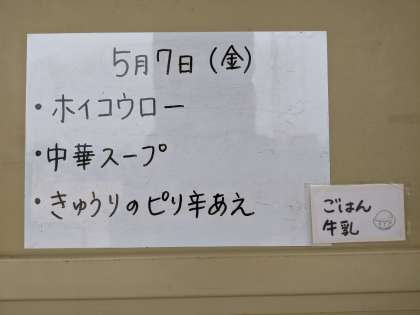 5月7日(金)
・ホイコウロー
・中華スープ
・きゅうりのピリ辛あえ
ごはん
牛乳